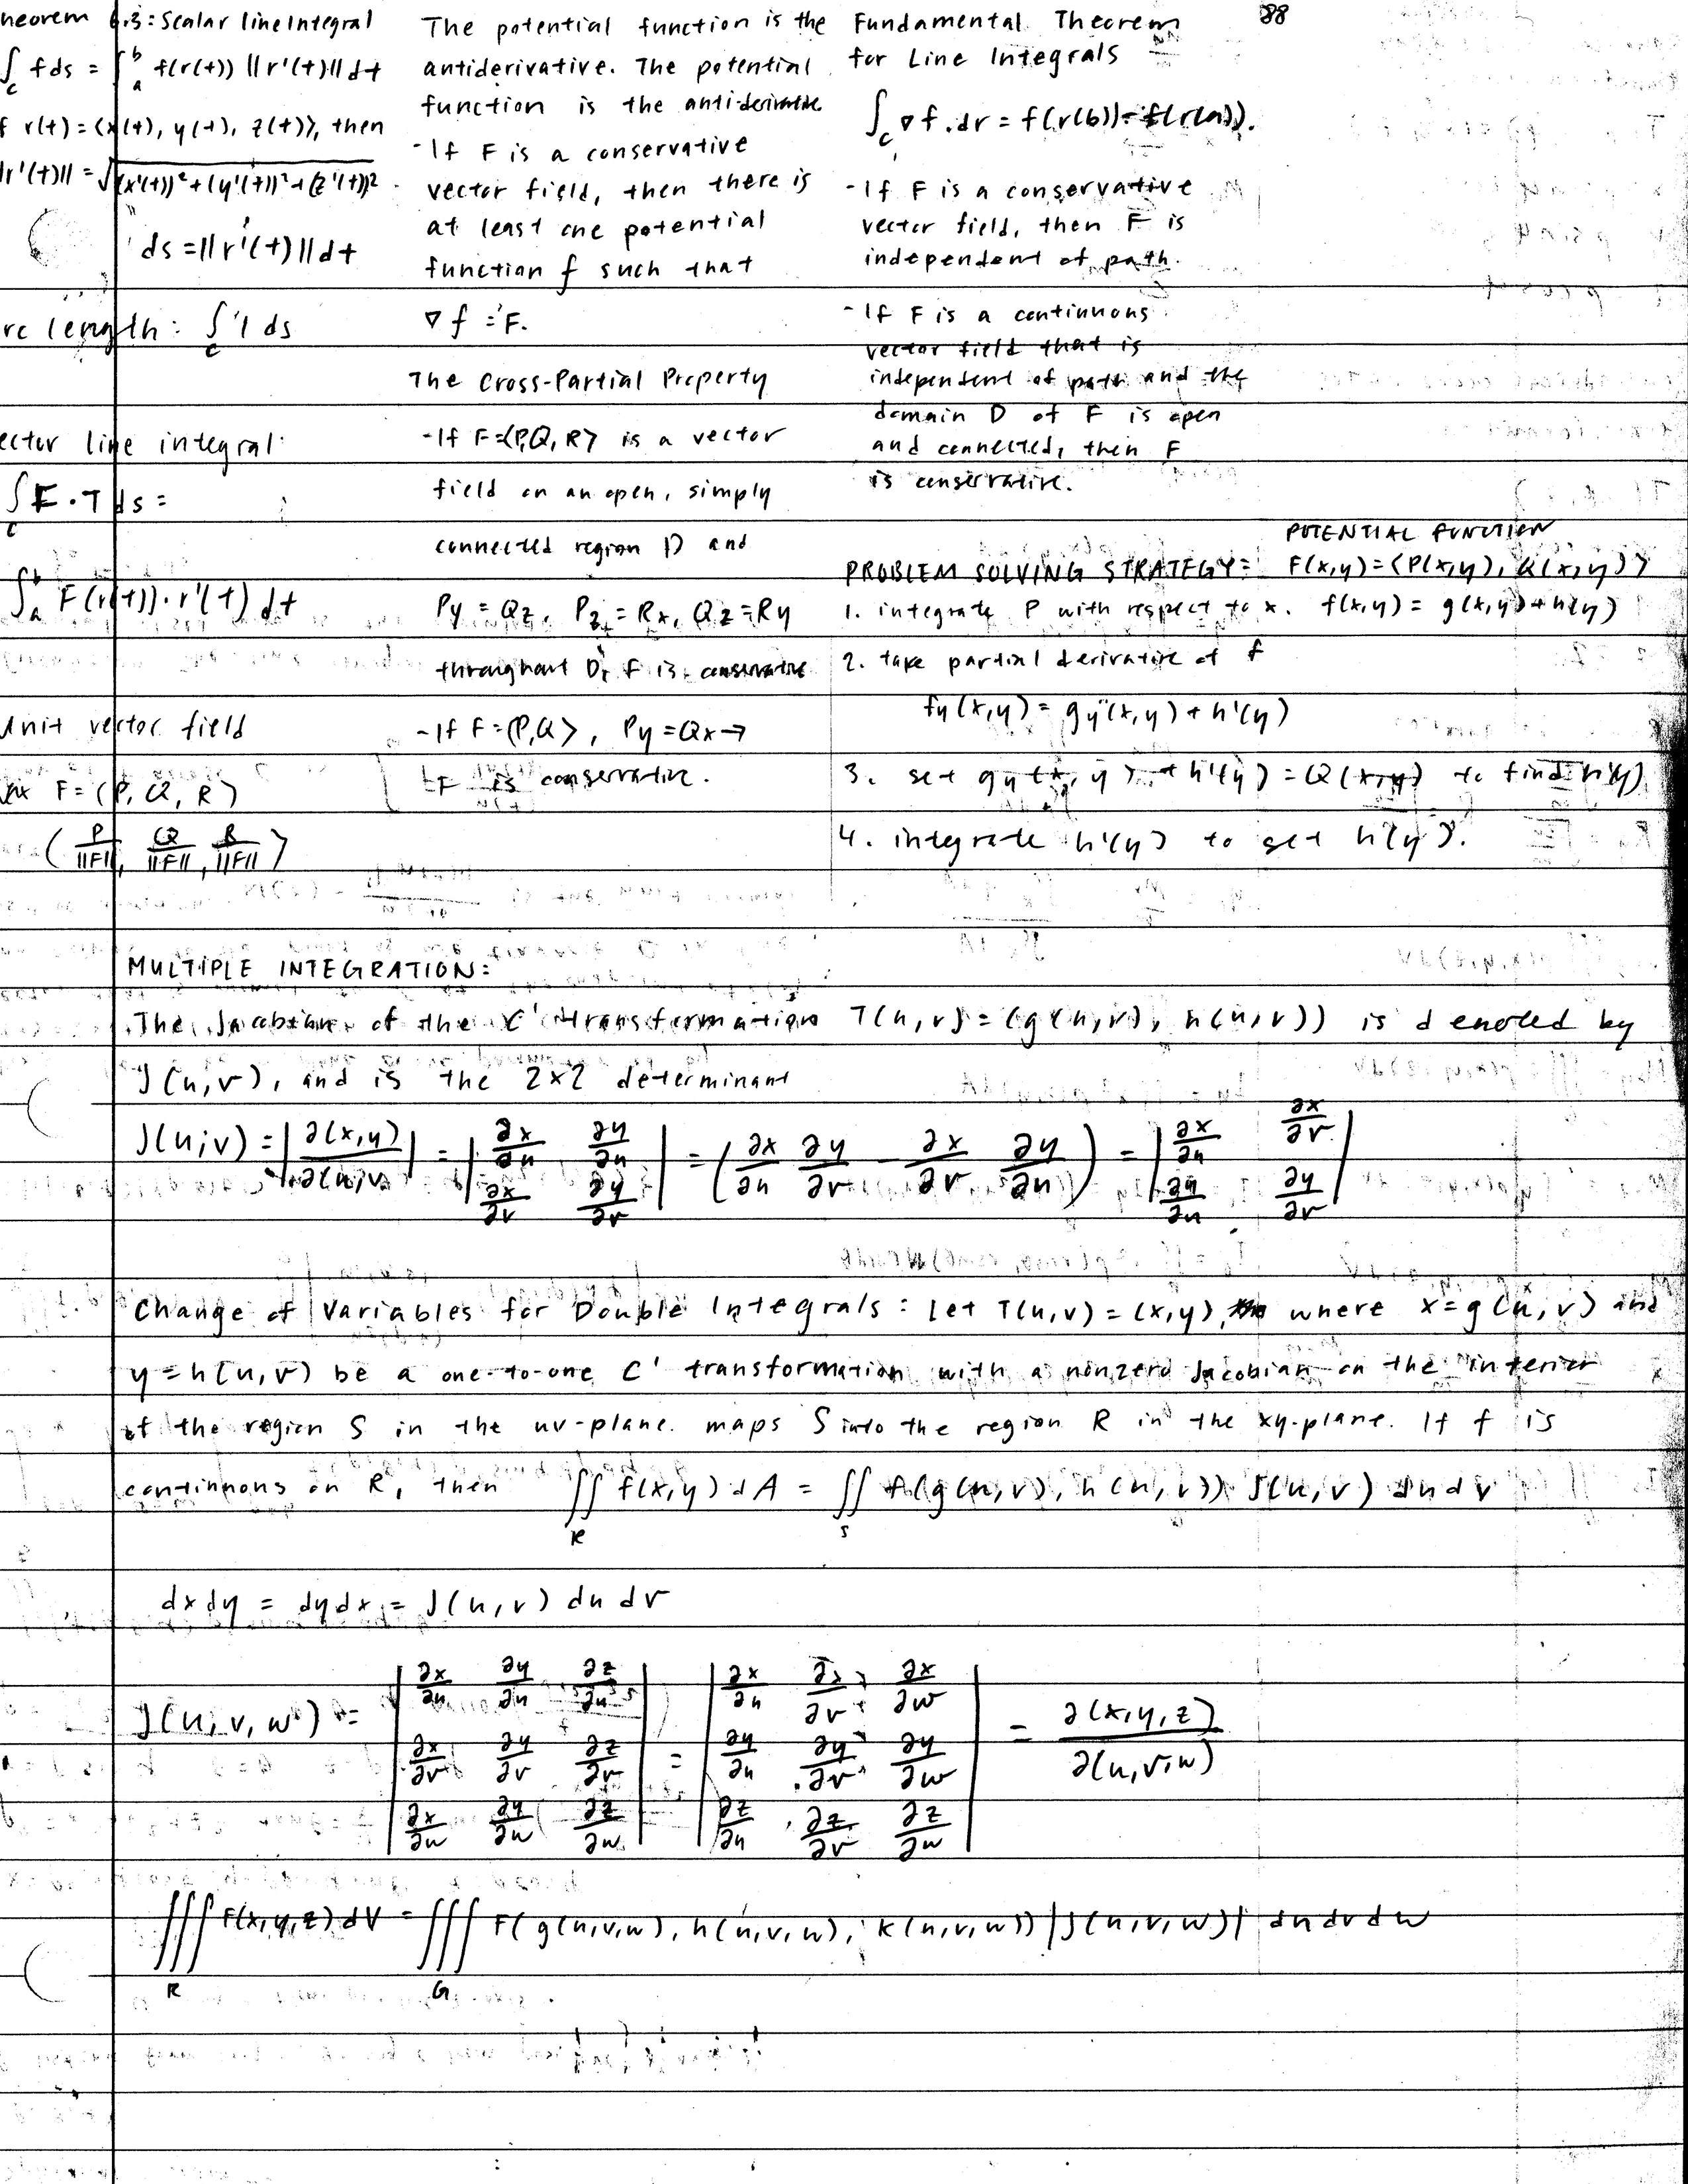 heorem 6.3: Scalar line Integral
∫_C f ds = ∫_a^b f(r(t)) ||r'(t)|| dt
f r(t) = ⟨x(t), y(t), z(t)⟩, then
||r'(t)|| = √((x'(t))² + (y'(t))² + (z'(t))²
ds = ||r'(t)|| dt
rc length: ∫_C 1 ds
ector line integral:
∫_C F · T ds =
∫_a^b F(r(t)) · r'(t) dt
Unit vector field
F = ⟨P, Q, R⟩
⟨P/||F||, Q/||F||, R/||F||⟩
The potential function is the
antiderivative. The potential
function is the antiderivative
- If F is a conservative
vector field, then there is
at least one potential
function f such that
∇f = F.
The Cross-Partial Property
- If F = ⟨P, Q, R⟩ is a vector
field on an open, simply
connected region D and
Py = Qz, Pz = Rx, Qz = Ry
throughout D, F is conservative
- If F = ⟨P, Q⟩, Py = Qx →
F is conservative.
88
Fundamental Theorem
for Line Integrals
∫_C ∇f · dr = f(r(b)) - f(r(a)).
- If F is a conservative
vector field, then F is
independent of path.
- If F is a continuous
vector field that is
independent of path and the
domain D of F is open
and connected, then F
is conservative.
POTENTIAL FUNCTION
PROBLEM SOLVING STRATEGY: F(x,y) = ⟨P(x,y), Q(x,y)⟩
1. integrate P with respect to x. f(x,y) = g(x,y) + h(y)
2. take partial derivative of f
fy(x,y) = gy(x,y) + h'(y)
3. set gy(x,y) + h'(y) = Q(x,y) to find h'(y)
4. integrate h'(y) to get h(y).
MULTIPLE INTEGRATION:
The Jacobian of the C' transformation T(u,v) = (g(u,v), h(u,v)) is denoted by
J(u,v), and is the 2x2 determinant
J(u,v) = |∂(x,y)/∂(u,v)| = |∂x/∂u ∂y/∂u; ∂x/∂v ∂y/∂v| = (∂x/∂u ∂y/∂v - ∂x/∂v ∂y/∂u) = |∂x/∂u ∂x/∂v; ∂y/∂u ∂y/∂v|
Change of Variables for Double Integrals: Let T(u,v) = (x,y), where x = g(u,v) and
y = h(u,v) be a one-to-one C' transformation with a nonzero Jacobian on the interior
of the region S in the uv-plane. maps S into the region R in the xy-plane. If f is
continuous on R, then ∬_R f(x,y) dA = ∬_S f(g(u,v), h(u,v)) J(u,v) du dv
dxdy = dydx = J(u,v) du dv
J(u,v,w) = |∂x/∂u ∂y/∂u ∂z/∂u; ∂x/∂v ∂y/∂v ∂z/∂v; ∂x/∂w ∂y/∂w ∂z/∂w| = |∂x/∂u ∂x/∂v ∂x/∂w; ∂y/∂u ∂y/∂v ∂y/∂w; ∂z/∂u ∂z/∂v ∂z/∂w| = ∂(x,y,z)/∂(u,v,w)
∭_R F(x,y,z) dV = ∭_G F(g(u,v,w), h(u,v,w), k(u,v,w)) |J(u,v,w)| du dv dw